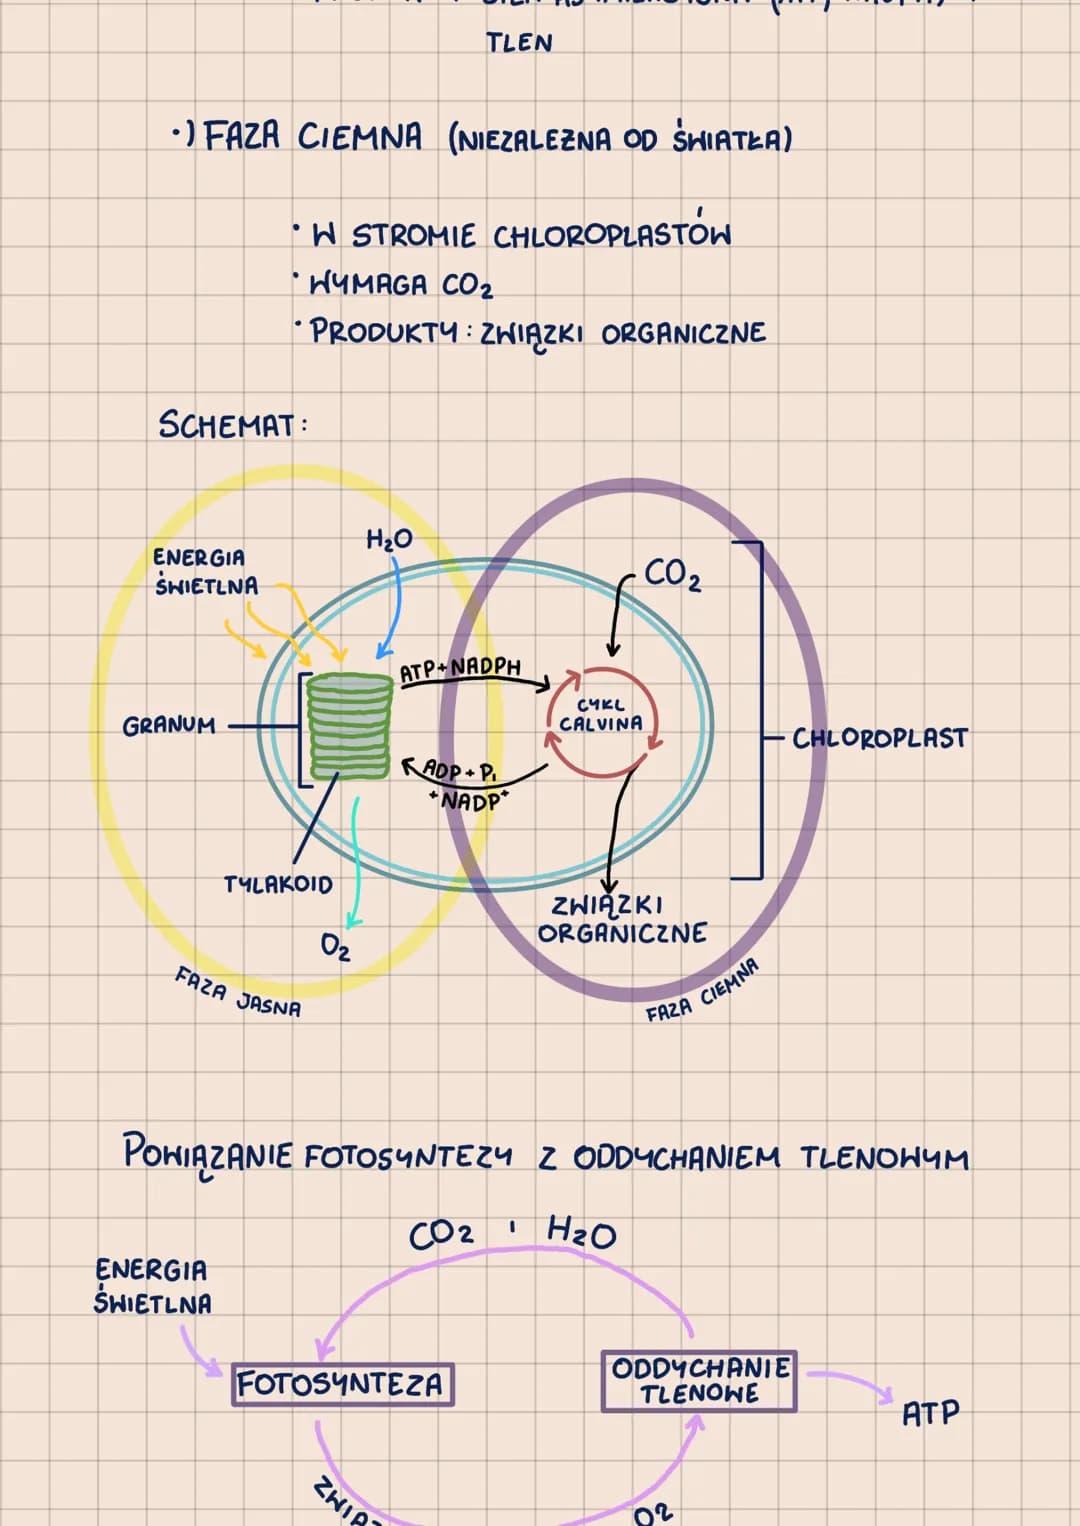 TLEN
•) FAZA CIEMNA (NIEZALEŻNA OD ŚWIATŁA)
• W STROMIE CHLOROPLASTÓW
• WYMAGA CO₂
• PRODUKTY: ZWIĄZKI ORGANICZNE
SCHEMAT:
H₂O
ENERGIA
ŚWIETLNA
CO₂
ATP+NADPH
CYKL
CALVINA
GRANUM
CHLOROPLAST
ADP + Pᵢ
+NADP⁺
TYLAKOID
ZWIĄZKI
ORGANICZNE
O₂
FAZA JASNA
FAZA CIEMNA
POWIĄZANIE FOTOSYNTEZY Z ODDYCHANIEM TLENOWYM
CO₂ i H₂O
ENERGIA
ŚWIETLNA
FOTOSYNTEZA
ODDYCHANIE
TLENOWE
ATP
O₂